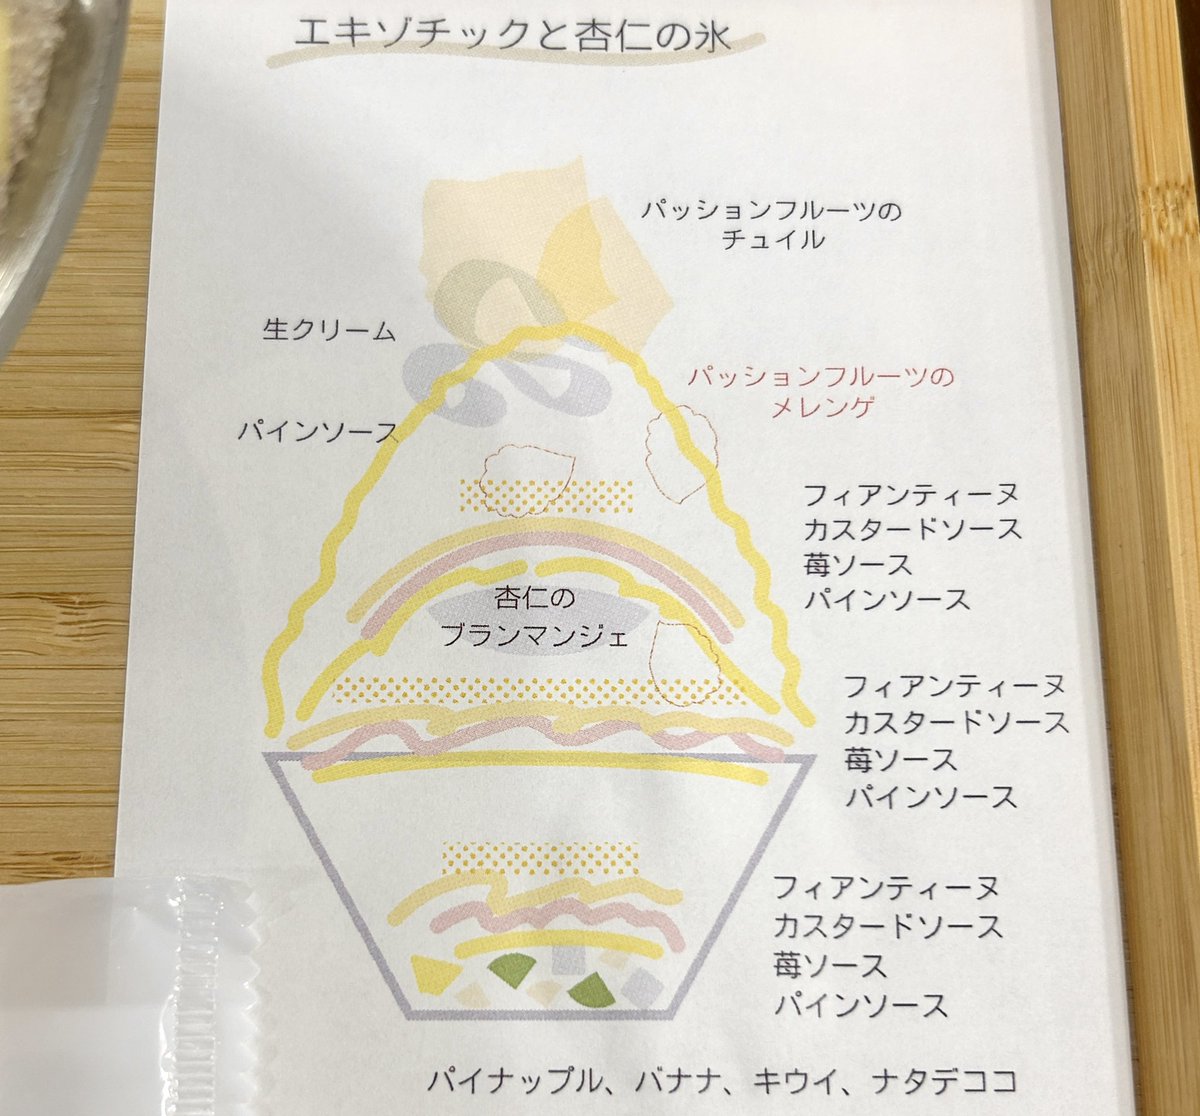 エキゾチックと杏仁の氷
パッションフルーツの
チュイル
生クリーム
パッションフルーツの
メレンゲ
パインソース
フィアンティーヌ
カスタードソース
苺ソース
パインソース
杏仁の
ブランマンジェ
フィアンティーヌ
カスタードソース
苺ソース
パインソース
フィアンティーヌ
カスタードソース
苺ソース
パインソース
パイナップル、バナナ、キウイ、ナタデココ